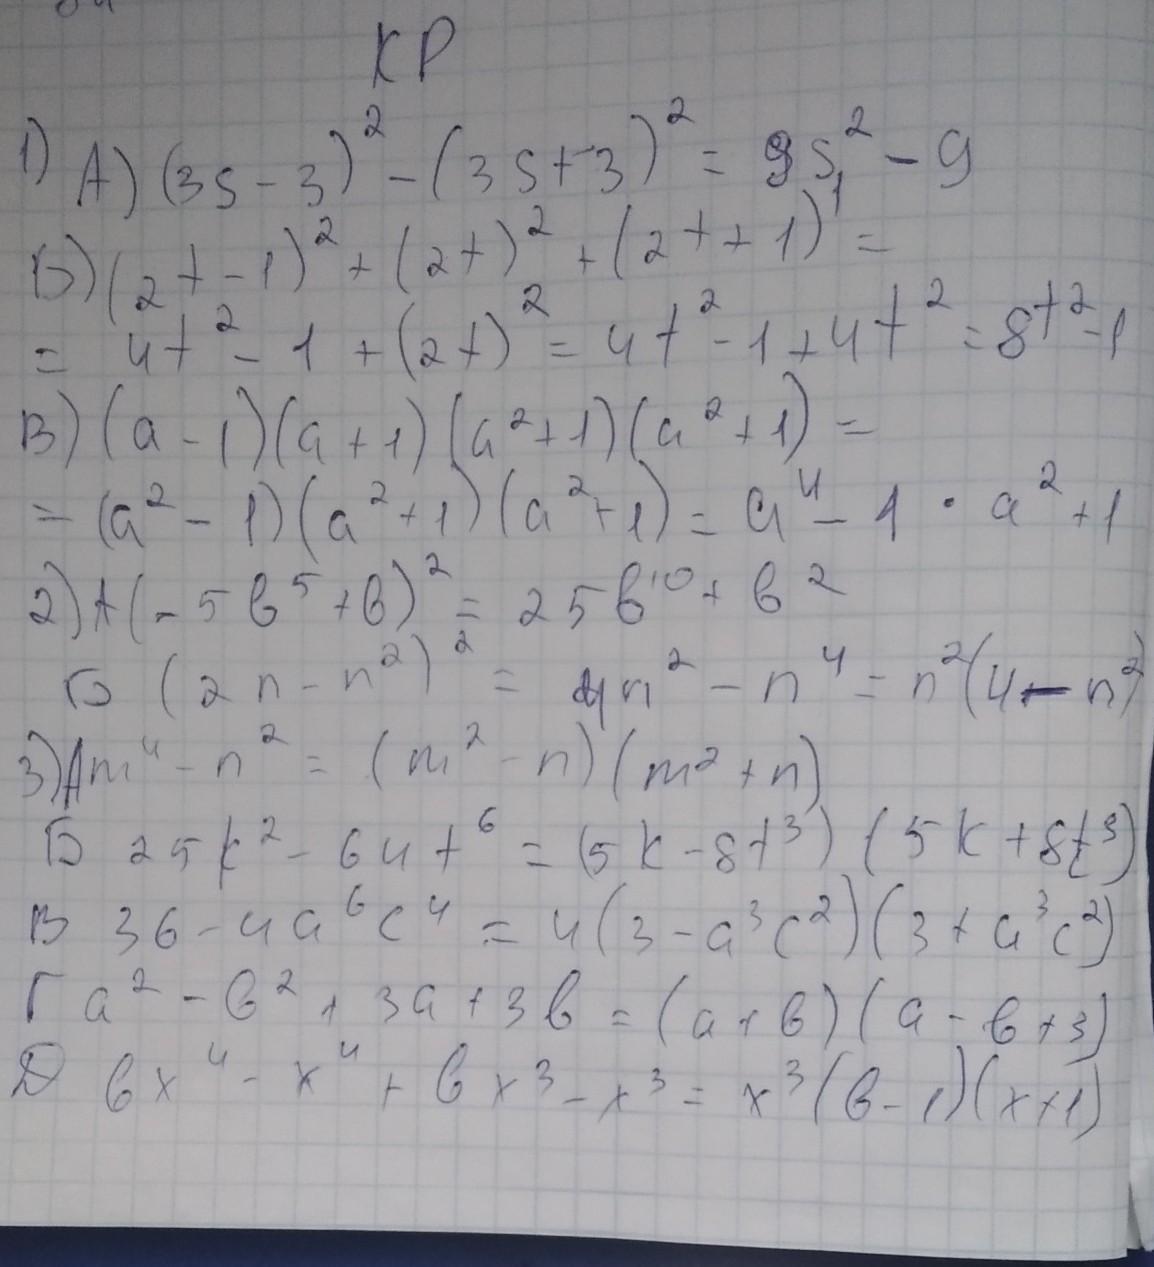 КР
1) А) (3s - 3)² - (3s + 3)² = 9s² - 9
Б) (2t - 1)² + (2t)² + (2t + 1)¹ =
= 4t² - 1 + (2t)² = 4t² - 1 + 4t² = 8t² - 1
В) (a - 1)(a + 1)(a² + 1)(a² + 1) =
= (a² - 1)(a² + 1)(a² + 1) = a⁴ - 1 · a² + 1
2) А (-5b⁵ + b)² = 25b¹⁰ + b²
Б (2n - n²)² = 4n² - n⁴ = n²(4 - n²)
3) А m⁴ - n² = (m² - n)(m² + n)
Б 25k² - 64t⁶ = (5k - 8t³)(5k + 8t³)
В 36 - 4a⁶c⁴ = 4(3 - a³c²)(3 + a³c²)
Г a² - b² + 3a + 3b = (a + b)(a - b + 3)
Д bx⁴ - x⁴ + bx³ - x³ = x³(b - 1)(x + 1)